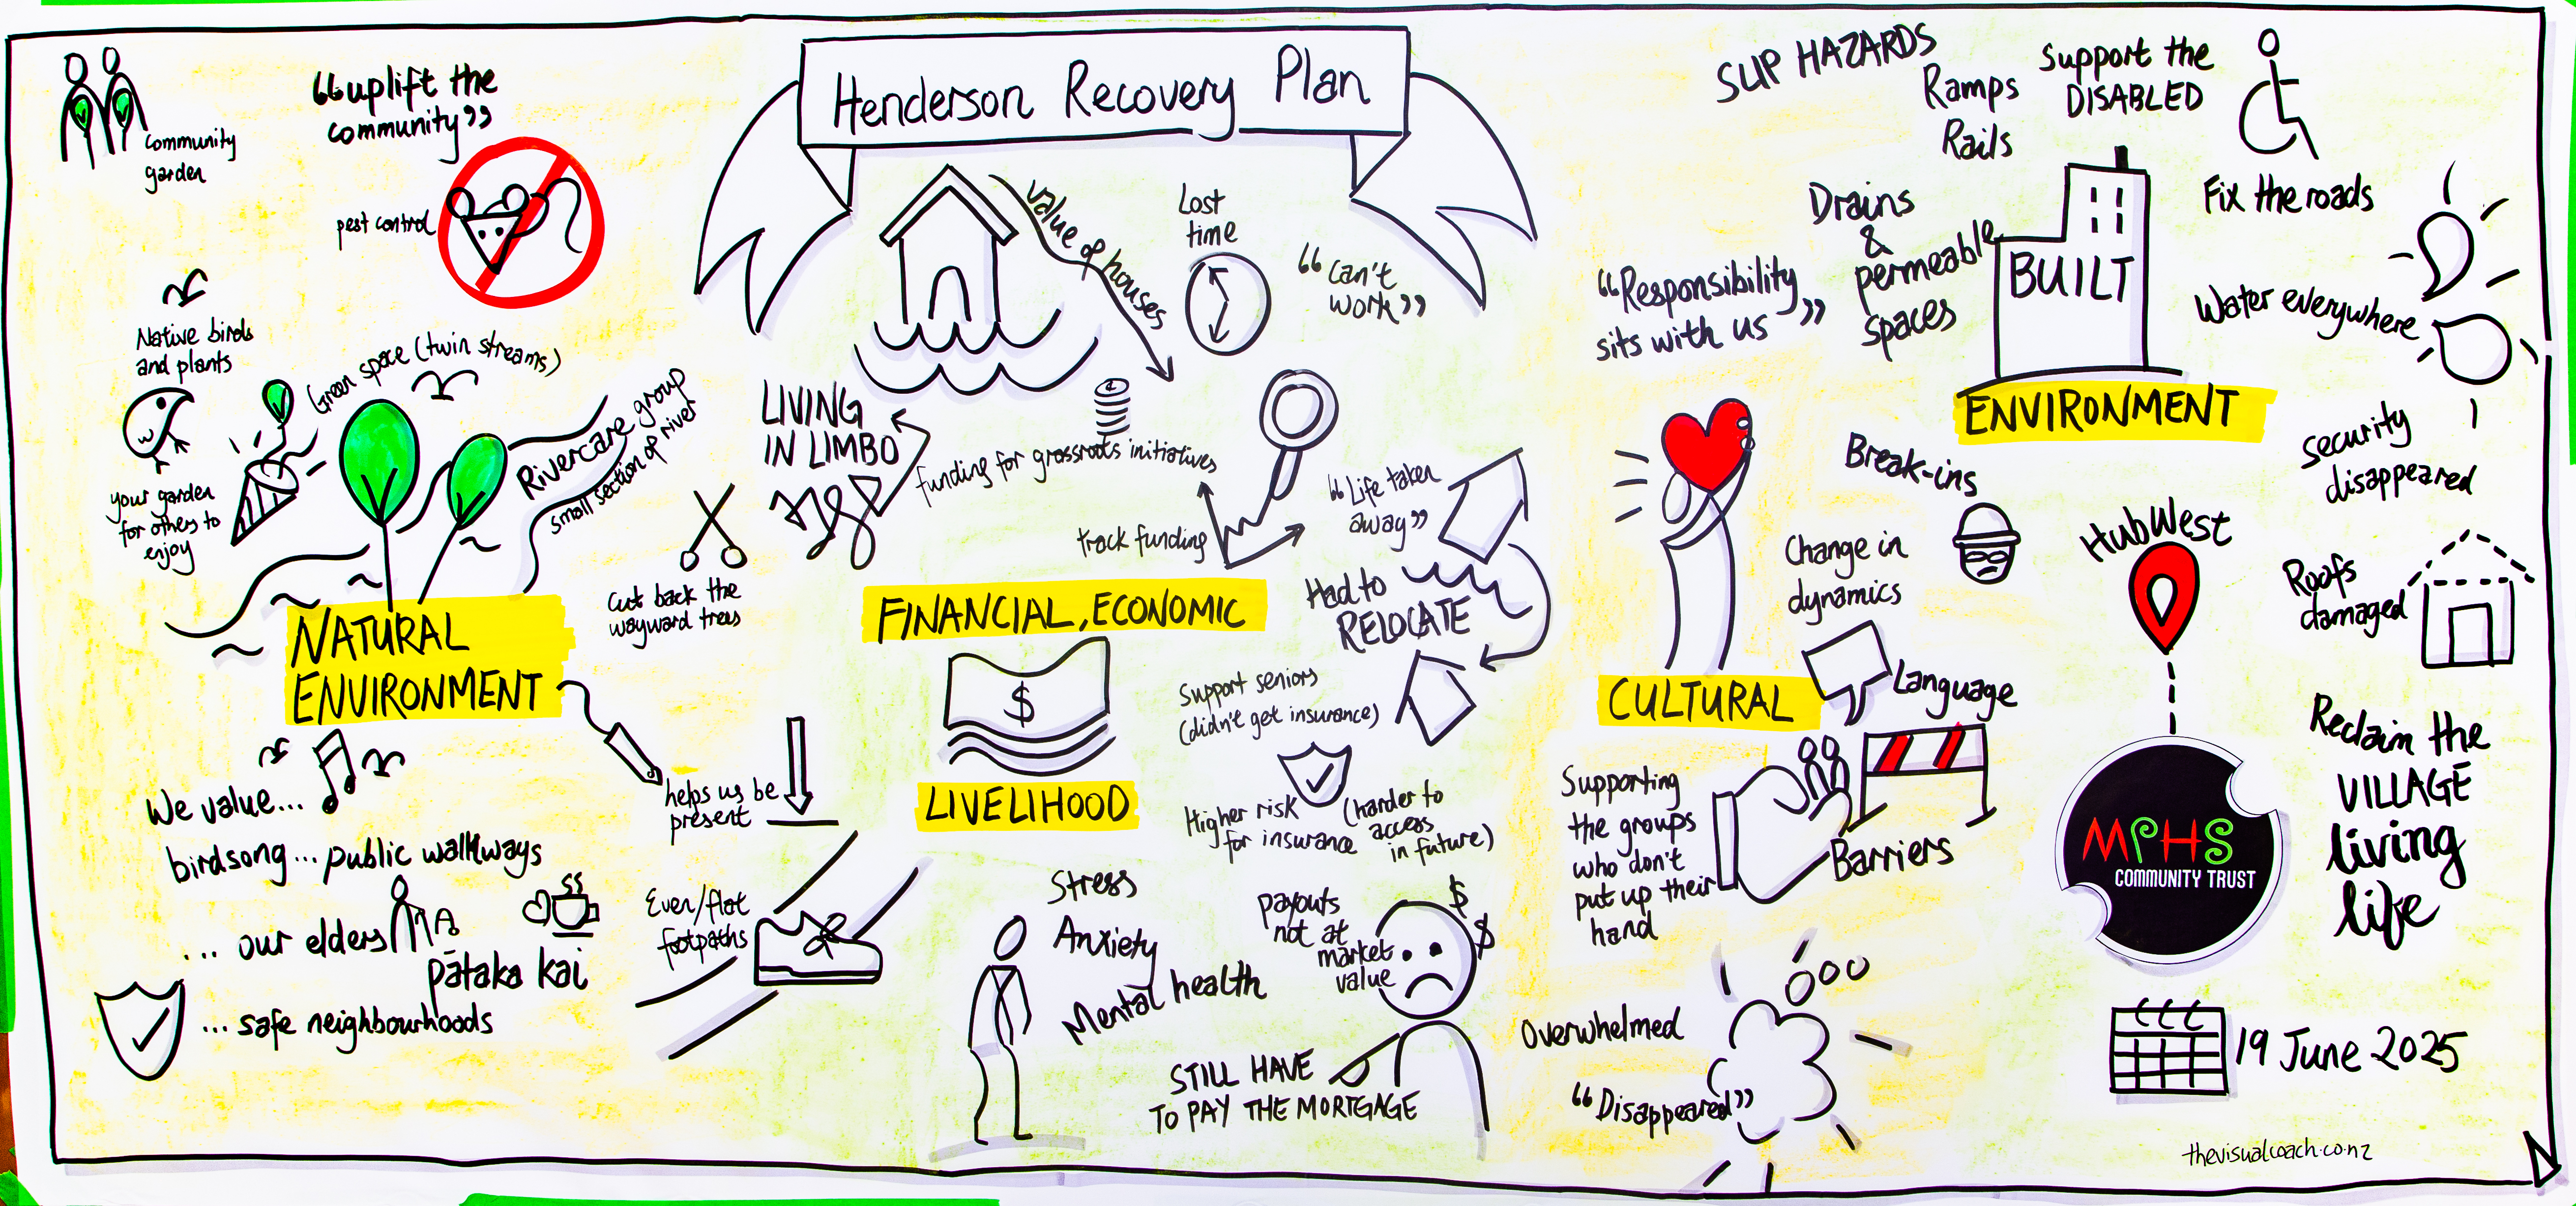 Henderson Recovery Plan
community
garden
“uplift the
community”
pest control
Native birds
and plants
Green space (twin streams)
your garden
for others to
enjoy
Rivercare group
small section of river
Cut back the
wayward trees
NATURAL
ENVIRONMENT
We value...
birdsong... public walkways
... our elders
pātaka kai
... safe neighbourhoods
helps us be
present
Even/flat
footpaths
value of houses
Lost
time
“Can't
work”
LIVING
IN LIMBO
funding for grassroots initiatives
track funding
“Life taken
away”
Had to
RELOCATE
FINANCIAL, ECONOMIC
$
LIVELIHOOD
Support seniors
(didn't get insurance)
Higher risk
for insurance
(harder to
access
in future)
Stress
Anxiety
Mental health
payouts
not at
market
value
$
$
STILL HAVE
TO PAY THE MORTGAGE
SLIP HAZARDS
Ramps
Rails
Support the
DISABLED
Fix the roads
Drains
&
permeable
spaces
“Responsibility
sits with us”
BUILT
ENVIRONMENT
Water everywhere
security
disappeared
Break-ins
Roofs
damaged
Change in
dynamics
CULTURAL
Language
Supporting
the groups
who don't
put up their
hand
Barriers
Overwhelmed
“Disappeared”
HubWest
MPHS
COMMUNITY TRUST
Reclaim the
VILLAGE
living
life
19 June 2025
thevisualcoach.co.nz